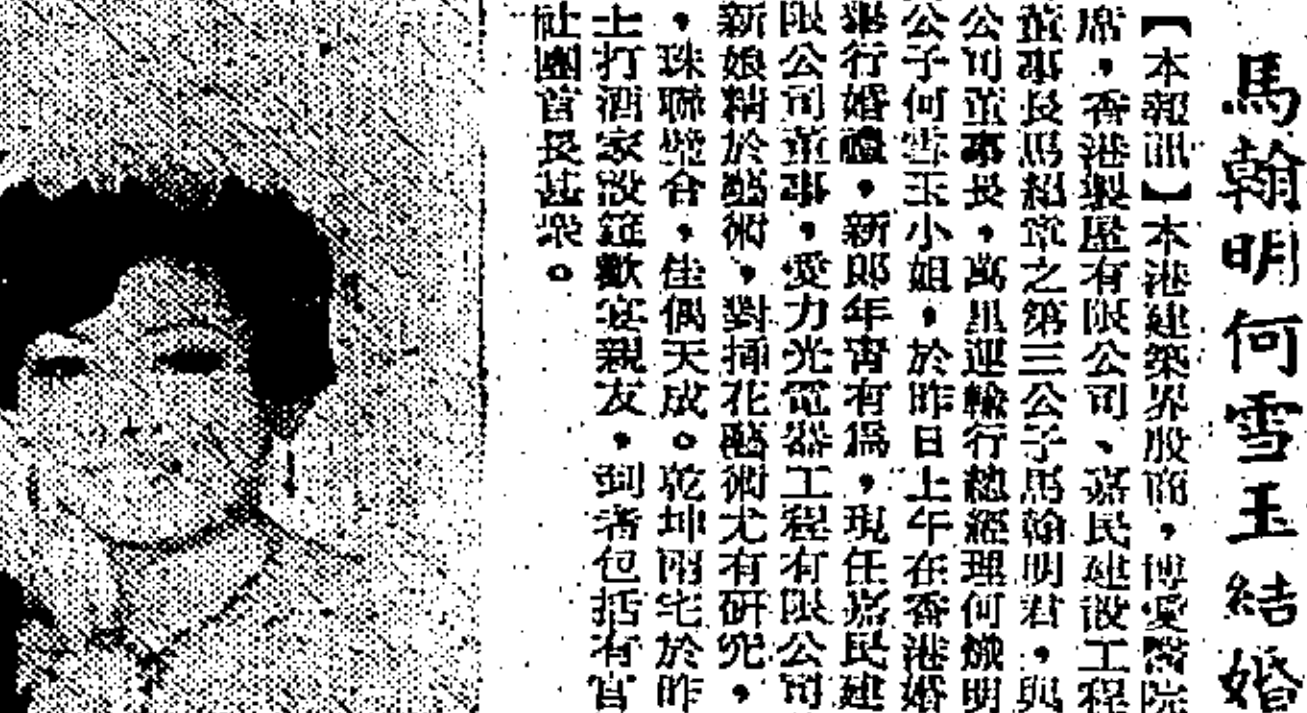 馬翰明何雪玉結婚
【本報訊】本港建築界殷商，博愛醫院
席，香港製屋有限公司、嘉民建設工程
董事長馬紹章之第三公子馬翰明君，與
公司董事長，萬里運輸行總經理何熾明
公子何雪玉小姐，於昨日上午在香港婚
舉行婚禮。新郎年青有為，現任嘉民建
限公司董事，愛力光電器工程有限公司
新娘精於藝術，對插花藝術尤有研究，
，珠聯璧合，佳偶天成。乾坤兩宅於昨
士打酒家設筵歡宴親友，到者包括有官
社團首長甚眾。